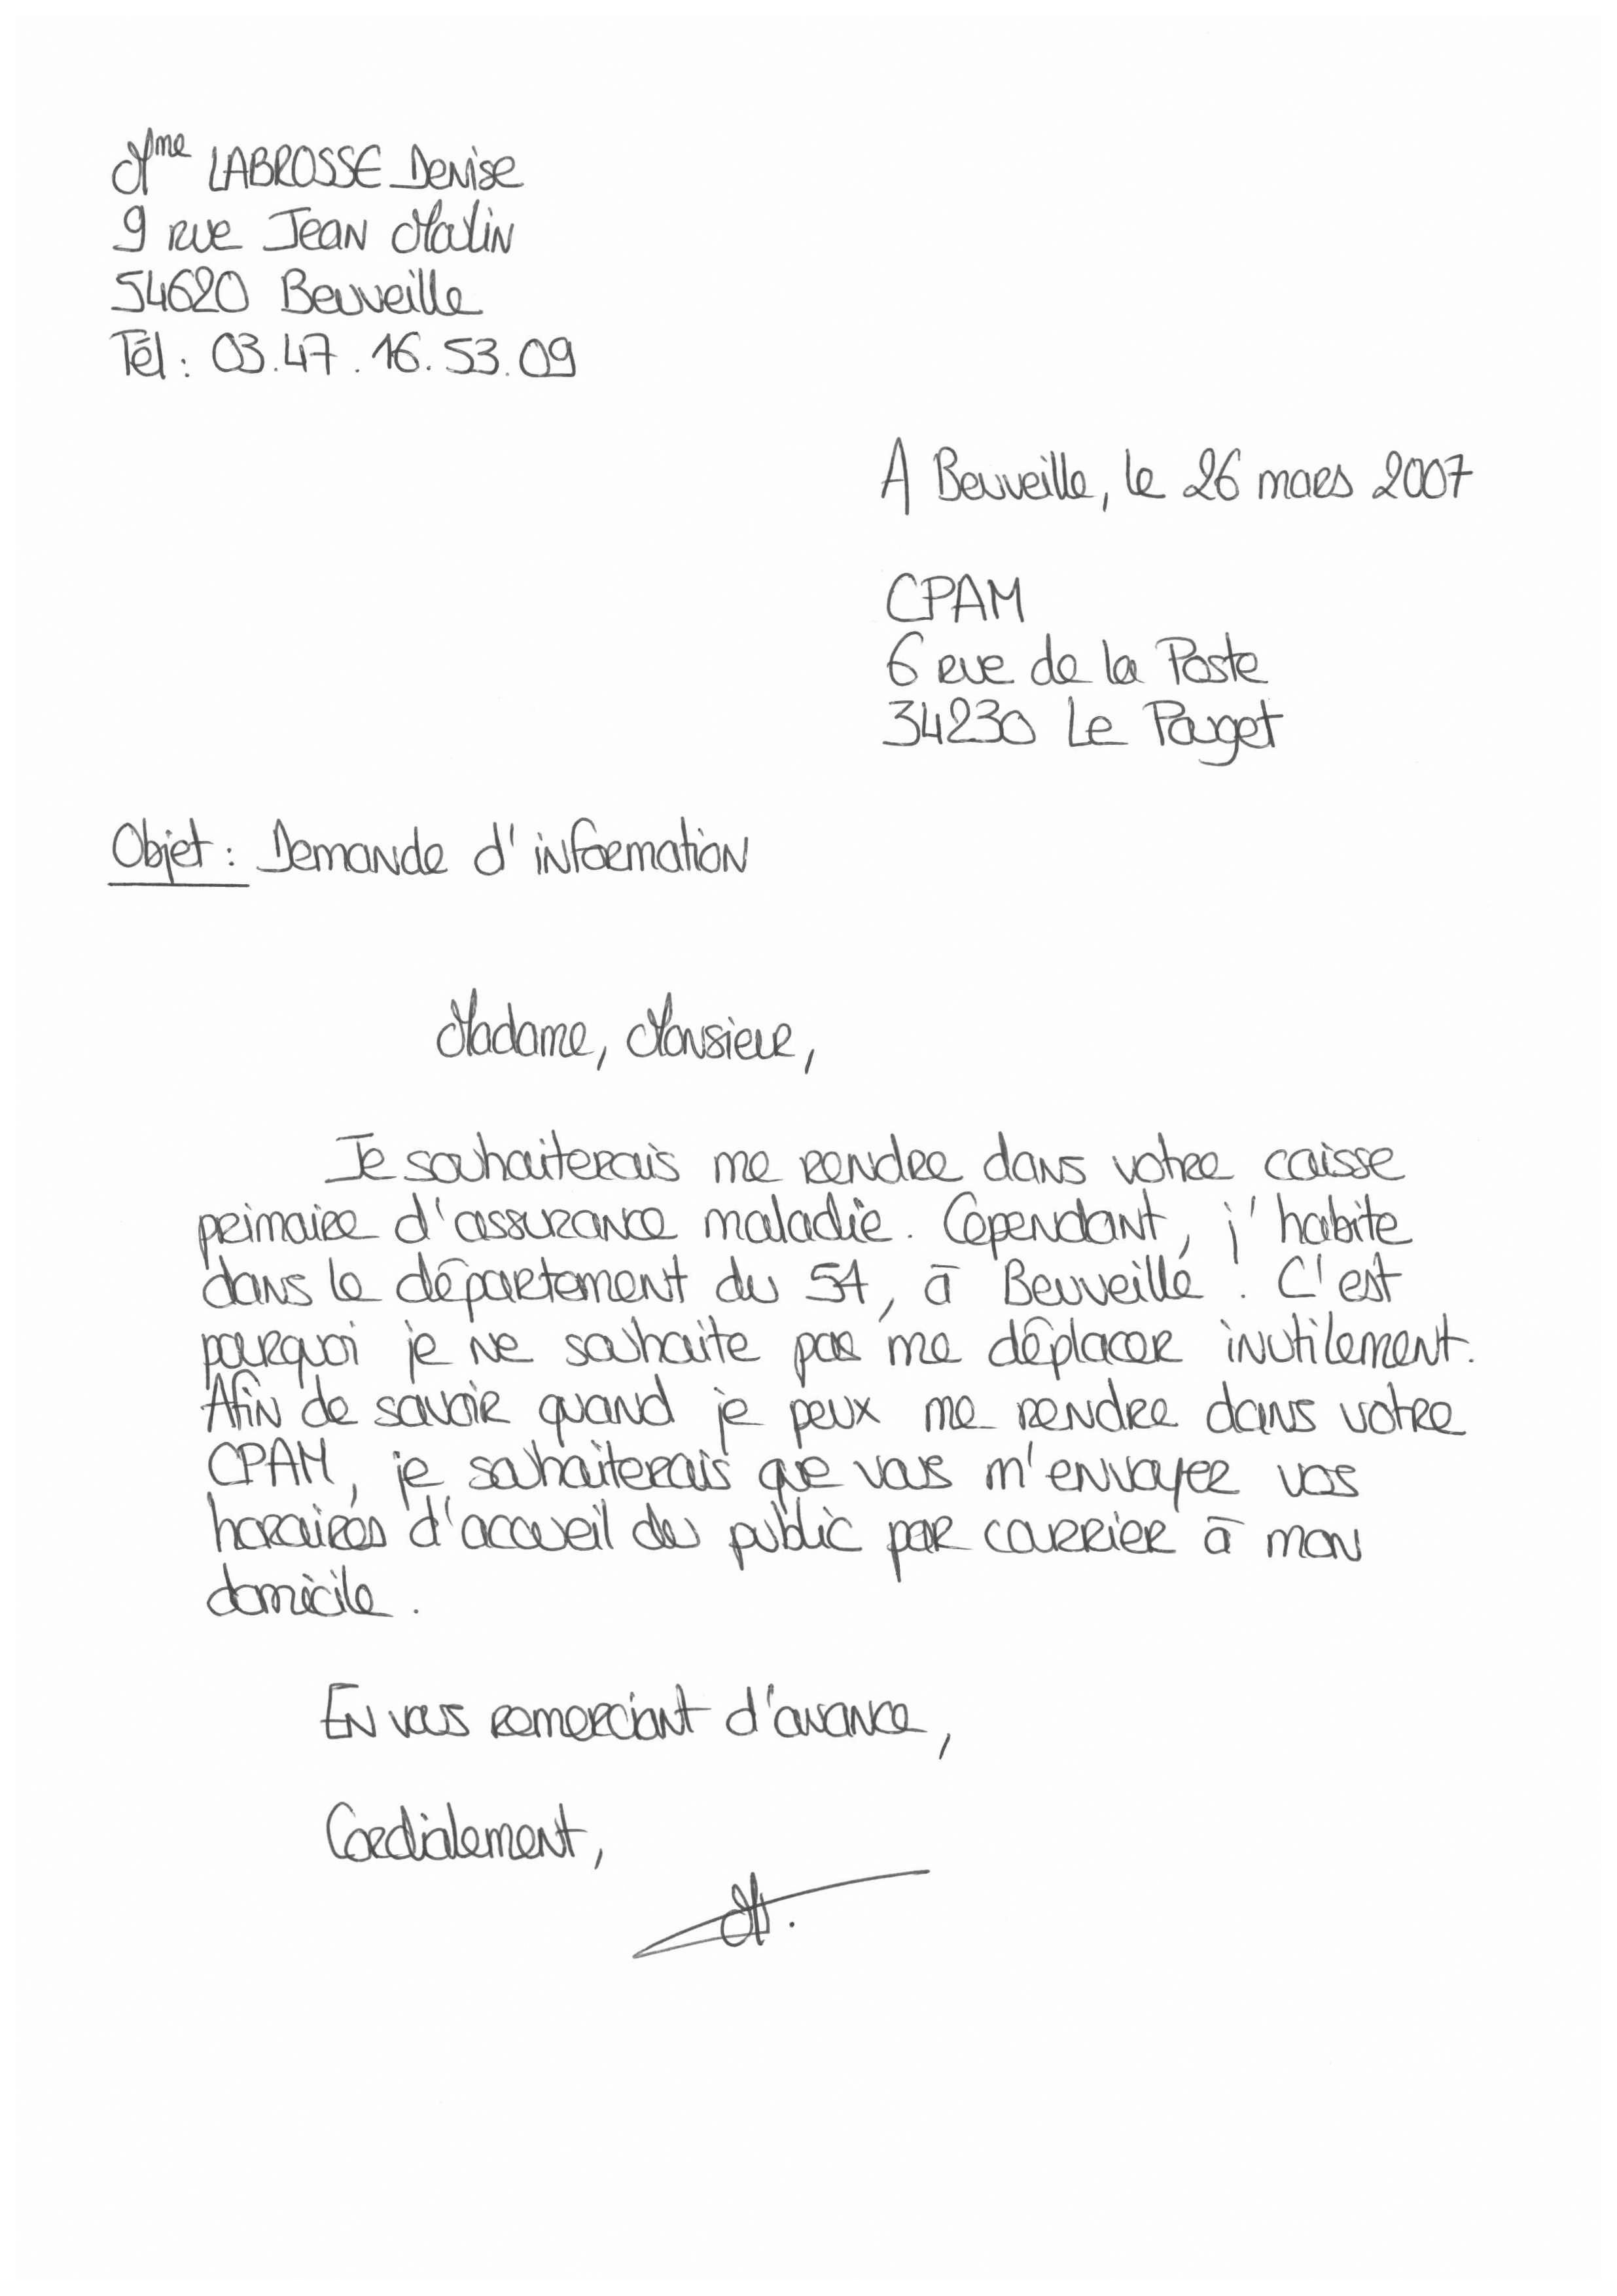 Mme LABROSSE Denise
9 rue Jean Malin
54620 Beuveille
Tél : 03.47.16.53.09
A Beuveille, le 26 mars 2007
CPAM
6 rue de la Poste
34230 Le Pouget
Objet : Demande d'information
Madame, Monsieur,
Je souhaiterais me rendre dans votre caisse
primaire d'assurance maladie. Cependant, j'habite
dans le département du 54, à Beuveille. C'est
pourquoi je ne souhaite pas me déplacer inutilement.
Afin de savoir quand je peux me rendre dans votre
CPAM, je souhaiterais que vous m'envoyer vos
horaires d'accueil du public par courrier à mon
domicile.
En vous remerciant d'avance,
Cordialement,